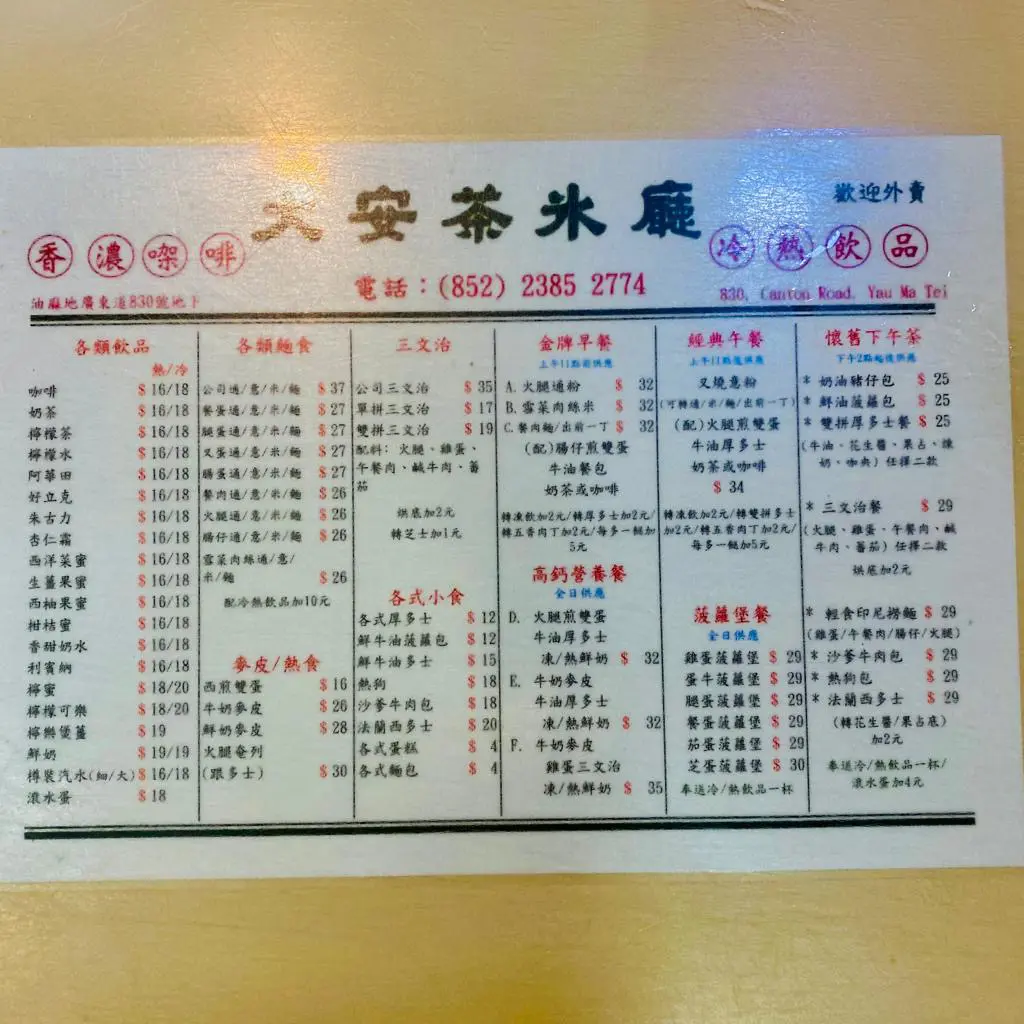 大安茶氷廳
歡迎外賣
香濃㗎啡
冷熱飲品
電話：(852) 2385 2774
油麻地廣東道830號地下
830, Canton Road, Yau Ma Tei
各類飲品
熱/冷
咖啡 $16/18
奶茶 $16/18
檸檬茶 $16/18
檸檬水 $16/18
阿華田 $16/18
好立克 $16/18
朱古力 $16/18
杏仁霜 $16/18
西洋菜蜜 $16/18
生薑果蜜 $16/18
西柚果蜜 $16/18
柑桔蜜 $16/18
香甜奶水 $16/18
利賓納 $16/18
檸蜜 $18/20
檸檬可樂 $18/20
檸樂煲薑 $19
鮮奶 $19/19
樽裝汽水(細/大) $16/18
滾水蛋 $18
各類麵食
公司通/意/米/麵 $37
餐蛋通/意/米/麵 $27
腿蛋通/意/米/麵 $27
叉蛋通/意/米/麵 $27
腸蛋通/意/米/麵 $27
餐肉通/意/米/麵 $26
火腿通/意/米/麵 $26
腸仔通/意/米/麵 $26
雪菜肉絲通/意/
米/麵 $26
配冷熱飲品加10元
麥皮/熱食
西煎雙蛋 $16
牛奶麥皮 $26
鮮奶麥皮 $28
火腿奄列
(跟多士) $30
三文治
公司三文治 $35
單拼三文治 $17
雙拼三文治 $19
配料：火腿、雞蛋、
午餐肉、鹹牛肉、蕃
茄
烘底加2元
轉芝士加1元
各式小食
各式厚多士 $12
鮮牛油菠蘿包 $12
鮮牛油多士 $15
熱狗 $18
沙爹牛肉包 $18
法蘭西多士 $20
各式蛋糕 $4
各式麵包 $4
金牌早餐
上午11點前供應
A. 火腿通粉 $32
B. 雪菜肉絲米 $32
C. 餐肉麵/出前一丁 $32
(配)腸仔煎雙蛋
牛油餐包
奶茶或咖啡
轉凍飲加2元/轉厚多士加2元/
轉五香肉丁加2元/每多一餸加
5元
高鈣營養餐
全日供應
D. 火腿煎雙蛋
牛油厚多士
凍/熱鮮奶 $32
E. 牛奶麥皮
牛油厚多士
凍/熱鮮奶 $32
F. 牛奶麥皮
雞蛋三文治
凍/熱鮮奶 $35
經典午餐
上午11點後供應
叉燒意粉
(可轉通/米/麵/出前一丁)
(配)火腿煎雙蛋
牛油厚多士
奶茶或咖啡
$34
轉凍飲加2元/轉雙拼多士
加2元/轉五香肉丁加2元/
每多一餸加5元
菠蘿堡餐
全日供應
雞蛋菠蘿堡 $29
蛋牛菠蘿堡 $29
腿蛋菠蘿堡 $29
餐蛋菠蘿堡 $29
茄蛋菠蘿堡 $29
芝蛋菠蘿堡 $30
奉送冷/熱飲品一杯
懷舊下午茶
下午2點鐘後供應
* 奶油豬仔包 $25
* 鮮油菠蘿包 $25
* 雙拼厚多士餐 $25
(牛油、花生醬、果占、煉
奶、咖央) 任擇二款
* 三文治餐 $29
(火腿、雞蛋、午餐肉、鹹
牛肉、蕃茄) 任擇二款
烘底加2元
* 輕食印尼撈麵 $29
(雞蛋/午餐肉/腸仔/火腿)
* 沙爹牛肉包 $29
* 熱狗包 $29
* 法蘭西多士 $29
(轉花生醬/果占底)
加2元
奉送冷/熱飲品一杯/
滾水蛋加4元